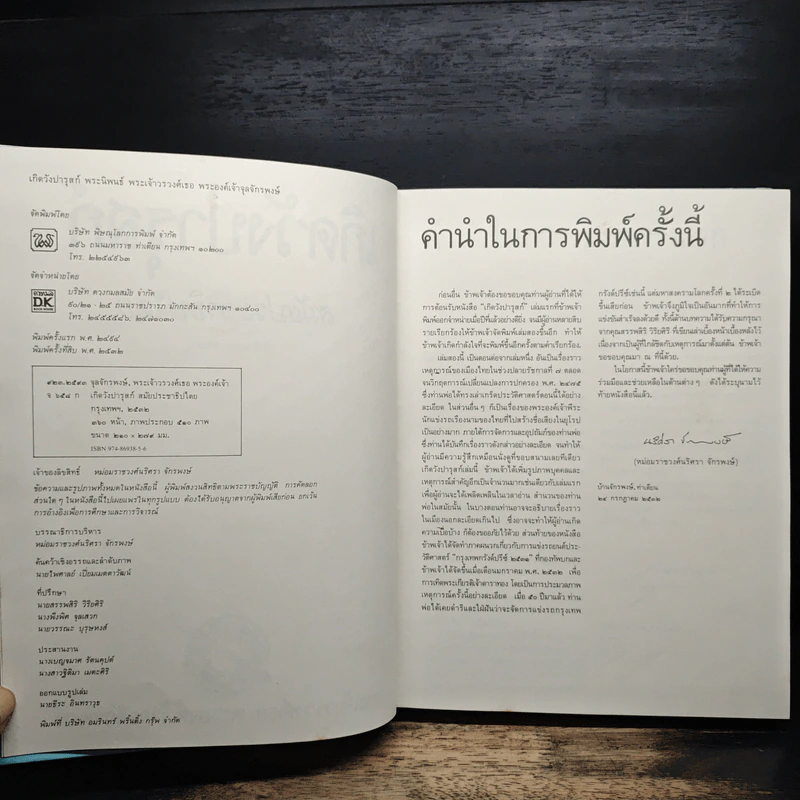 เกิดวังปารุสก์ พระนิพนธ์ พระเจ้าวรวงศ์เธอ พระองค์เจ้าจุลจักรพงษ์
จัดพิมพ์โดย
บริษัท พิษณุโลกการพิมพ์ จำกัด
๓๙๖ ถนนมหาราช ท่าเตียน กรุงเทพฯ ๑๐๒๐๐
โทร. ๒๒๕๔๙๖๓
จัดจำหน่ายโดย
DK
บริษัท ดวงกมลสมัย จำกัด
๙๐/๒๑ - ๒๕ ถนนราชปรารภ มักกะสัน กรุงเทพฯ ๑๐๔๐๐
โทร. ๒๔๕๕๕๘๖, ๒๔๗๑๐๓๐
พิมพ์ครั้งแรก พ.ศ. ๒๔๙๔
พิมพ์ครั้งที่สิบ พ.ศ. ๒๕๓๒
๙๒๓.๒๕๙๓ จุลจักรพงษ์, พระเจ้าวรวงศ์เธอ พระองค์เจ้า
จ ๖๕๔ ก เกิดวังปารุสก์ สมัยประชาธิปไตย
กรุงเทพฯ. ๒๕๓๒
๓๖๐ หน้า, ภาพประกอบ ๕๑๐ ภาพ
ขนาด ๒๑๐ × ๒๗๕ มม.
ISBN 974-86938-5-6
เจ้าของลิขสิทธิ์ หม่อมราชวงศ์นริศรา จักรพงษ์
ข้อความและรูปภาพทั้งหมดในหนังสือนี้ ผู้พิมพ์สงวนสิทธิตามพระราชบัญญัติ การคัดลอก
ส่วนใด ๆ ในหนังสือนี้ไปเผยแพร่ในทุกรูปแบบ ต้องได้รับอนุญาตจากผู้พิมพ์เสียก่อน ยกเว้น
การอ้างอิงเพื่อการศึกษาและการวิจารณ์
บรรณาธิการบริหาร
หม่อมราชวงศ์นริศรา จักรพงษ์
ค้นคว้าเชิงอรรถและลำดับภาพ
นายไพศาลย์ เปลี่ยมเมตตาวัฒน์
ที่ปรึกษา
นายสรรพสิริ วิรยศิริ
นางพึงพิศ จุลเสวก
นายวรรณะ บุรุษหงส์
ประสานงาน
นางเบญจมาศ รัตนคุปต์
นางสาวฐิติมา เมตะศิริ
ออกแบบรูปเล่ม
นายธีระ อินทราวุธ
พิมพ์ที่ บริษัท อมรินทร์ พริ้นติ้ง กรุ๊พ จำกัด
คำนำในการพิมพ์ครั้งนี้
ก่อนอื่น ข้าพเจ้าต้องขอขอบคุณท่านผู้อ่านที่ได้ให้
การต้อนรับหนังสือ "เกิดวังปารุสก์" เล่มแรกที่ข้าพเจ้า
พิมพ์ออกจำหน่ายเมื่อปีที่แล้วอย่างดียิ่ง จนมีผู้อ่านหลายสิบ
รายเรียกร้องให้ข้าพเจ้าจัดพิมพ์เล่มสองขึ้นอีก ทำให้
ข้าพเจ้าเกิดกำลังใจที่จะพิมพ์ขึ้นอีกครั้งตามคำเรียกร้อง.
เล่มสองนี้ เป็นตอนต่อจากเล่มหนึ่ง อันเป็นเรื่องราว
เหตุการณ์ของเมืองไทยในช่วงปลายรัชกาลที่ ๗ ตลอด
จนวิกฤตการณ์เปลี่ยนแปลงการปกครอง พ.ศ. ๒๔๗๕
ซึ่งท่านพ่อได้ทรงเล่าเกร็ดประวัติศาสตร์ตอนนี้ได้อย่าง
ละเอียด ในส่วนอื่น ๆ ก็เป็นเรื่องของพระองค์เจ้าพีระ
นักแข่งรถเรืองนามของไทยที่ไปสร้างชื่อเสียงในยุโรป
เป็นอย่างมาก ภายใต้การจัดการและอุปถัมภ์ของท่านพ่อ
ซึ่งท่านได้บันทึกเรื่องราวดังกล่าวอย่างละเอียด จนทำให้
ผู้อ่านมีความรู้สึกเหมือนนั่งดูที่ขอบสนามเลยทีเดียว
เกิดวังปารุสก์เล่มนี้ ข้าพเจ้าได้เพิ่มรูปภาพบุคคลและ
เหตุการณ์สำคัญอีกเป็นจำนวนมากเช่นเดียวกับเล่มแรก
เพื่อผู้อ่านจะได้เพลิดเพลินในเวลาอ่าน สำนวนของท่าน
พ่อในสมัยนั้น ในบางตอนท่านอาจจะอธิบายเรื่องราว
ในเมืองนอกละเอียดเกินไป ซึ่งอาจจะทำให้ผู้อ่านเกิด
ความเบื่อบ้าง ก็ต้องขออภัยไว้ด้วย ส่วนท้ายของหนังสือ
ข้าพเจ้าได้จัดทำภาคผนวกเกี่ยวกับการแข่งรถยนต์ประ-
วัติศาสตร์ "กรุงเทพกรังด์ปรีซ์ ๒๕๓๑" ที่กองทัพบกและ
ข้าพเจ้าได้จัดขึ้นเมื่อเดือนมกราคม พ.ศ. ๒๕๓๒ เพื่อ
การเทิดพระเกียรติเจ้าดาราทอง โดยเป็นการประมวลภาพ
เหตุการณ์ครั้งนี้อย่างละเอียด เมื่อ ๕๐ ปีมาแล้ว ท่าน
พ่อได้เคยดำริและใฝ่ฝันว่าจะจัดการแข่งรถกรุงเทพ
กรังด์ปรีซ์เช่นนี้ แต่มหาสงครามโลกครั้งที่ ๒ ได้ระเบิด
ขึ้นเสียก่อน ข้าพเจ้าจึงภูมิใจเป็นอันมากที่ทำให้การ
แข่งขันสำเร็จลงด้วยดี ทั้งนี้ด้านบทความได้รับความกรุณา
จากคุณสรรพสิริ วิรยศิริ ที่เขียนเล่าเบื้องหน้าเบื้องหลังไว้
เนื่องจากเป็นผู้ที่ใกล้ชิดกับเหตุการณ์มาตั้งแต่ต้น ข้าพเจ้า
ขอขอบคุณมา ณ ที่นี้ด้วย.
ในโอกาสนี้ข้าพเจ้าใคร่ขอขอบคุณท่านผู้ที่ได้ให้ความ
ร่วมมือและช่วยเหลือในด้านต่าง ๆ ดังได้ระบุนามไว้
ท้ายหนังสือนี้แล้ว.
(หม่อมราชวงศ์นริศรา จักรพงษ์)
บ้านจักรพงษ์, ท่าเตียน
๒๔ กรกฎาคม ๒๕๓๒